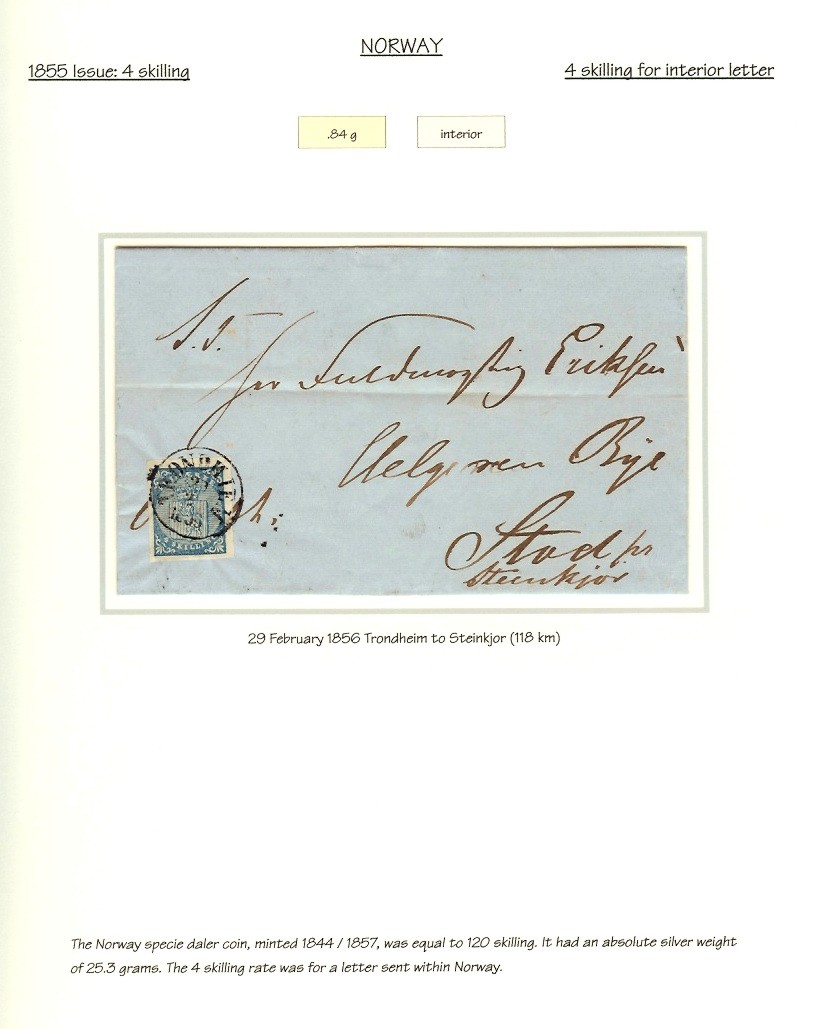 NORWAY
1855 Issue: 4 skilling
4 skilling for interior letter
.84 g
interior
S.T.
Herr Fuldmægtig Eriksen
Stod pr
Steenkjør
SKILLING
29 February 1856 Trondheim to Steinkjor (118 km)
The Norway specie daler coin, minted 1844 / 1857, was equal to 120 skilling. It had an absolute silver weight
of 25.3 grams. The 4 skilling rate was for a letter sent within Norway.